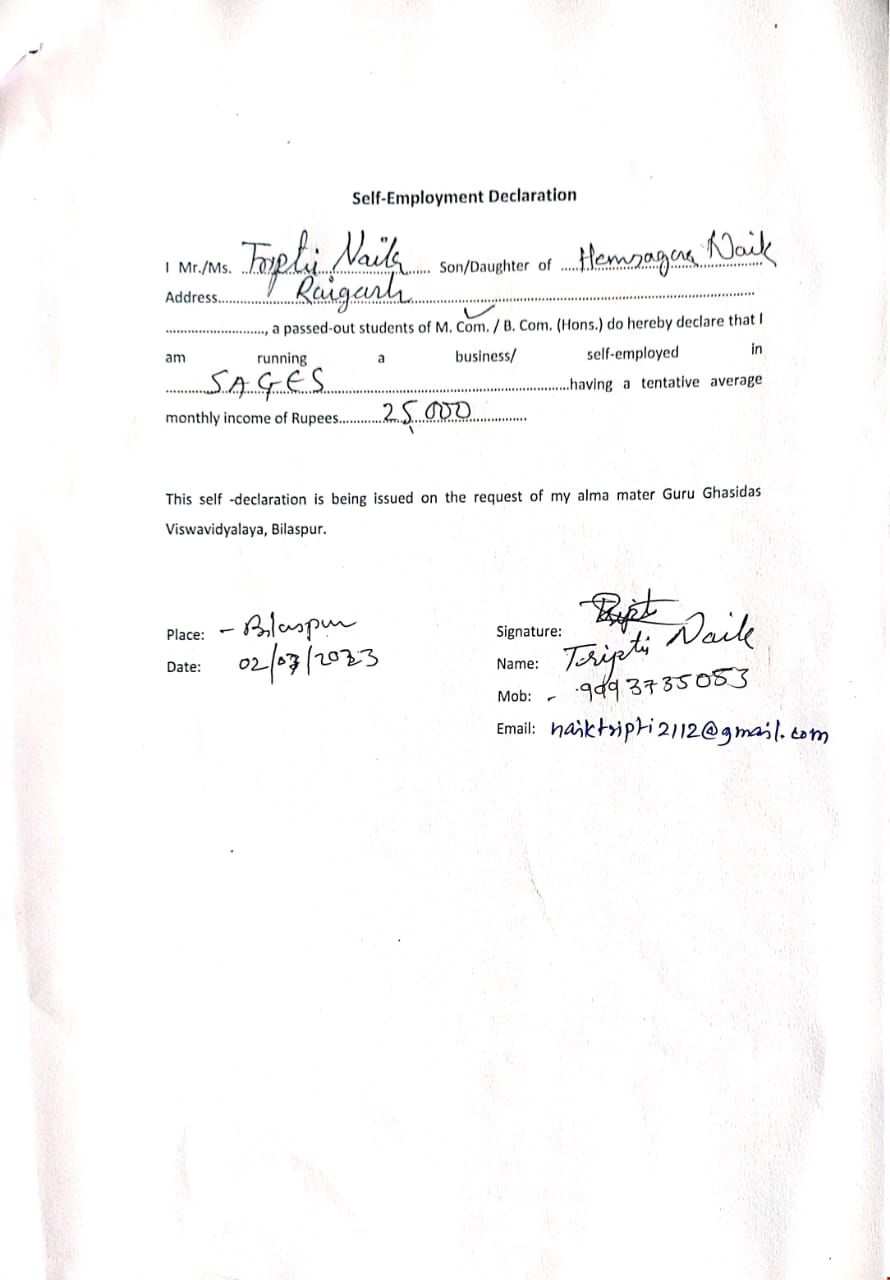 Self-Employment Declaration
I Mr./Ms. Tripti Naik Son/Daughter of Hemsagar Naik
Address Raigarh
, a passed-out students of M. Com. / B. Com. (Hons.) do hereby declare that I
am running a business/ self-employed in
SAGES having a tentative average
monthly income of Rupees 25,000
This self -declaration is being issued on the request of my alma mater Guru Ghasidas
Viswavidyalaya, Bilaspur.
Place: - Bilaspur
Date: 02/03/2023
Signature: Tripti
Name: Tripti Naik
Mob: - 9993735053
Email: naiktripti2112@gmail.com